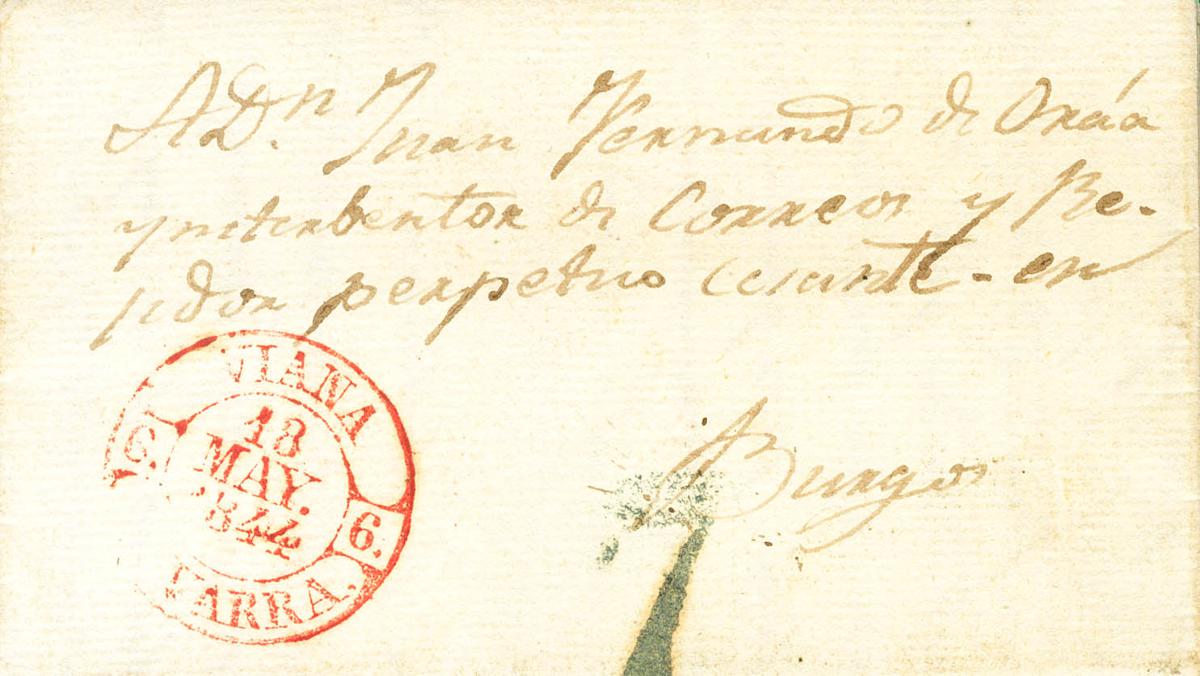 A Dn. Juan Fernando de Oráa
ynterbentor de Correos y Re-
jidor perpetuo cesante - en
Burgos
VIANA
6.
18
MAY.
1844
6.
VARRA.